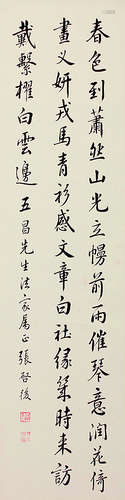 春色到蕭然山光立幔前雨催琴意潤花倚
畫義妍戎馬青衫感文章白社緣築時来訪
戴繫櫂白雲邊 五昌先生法家属正 張啓後